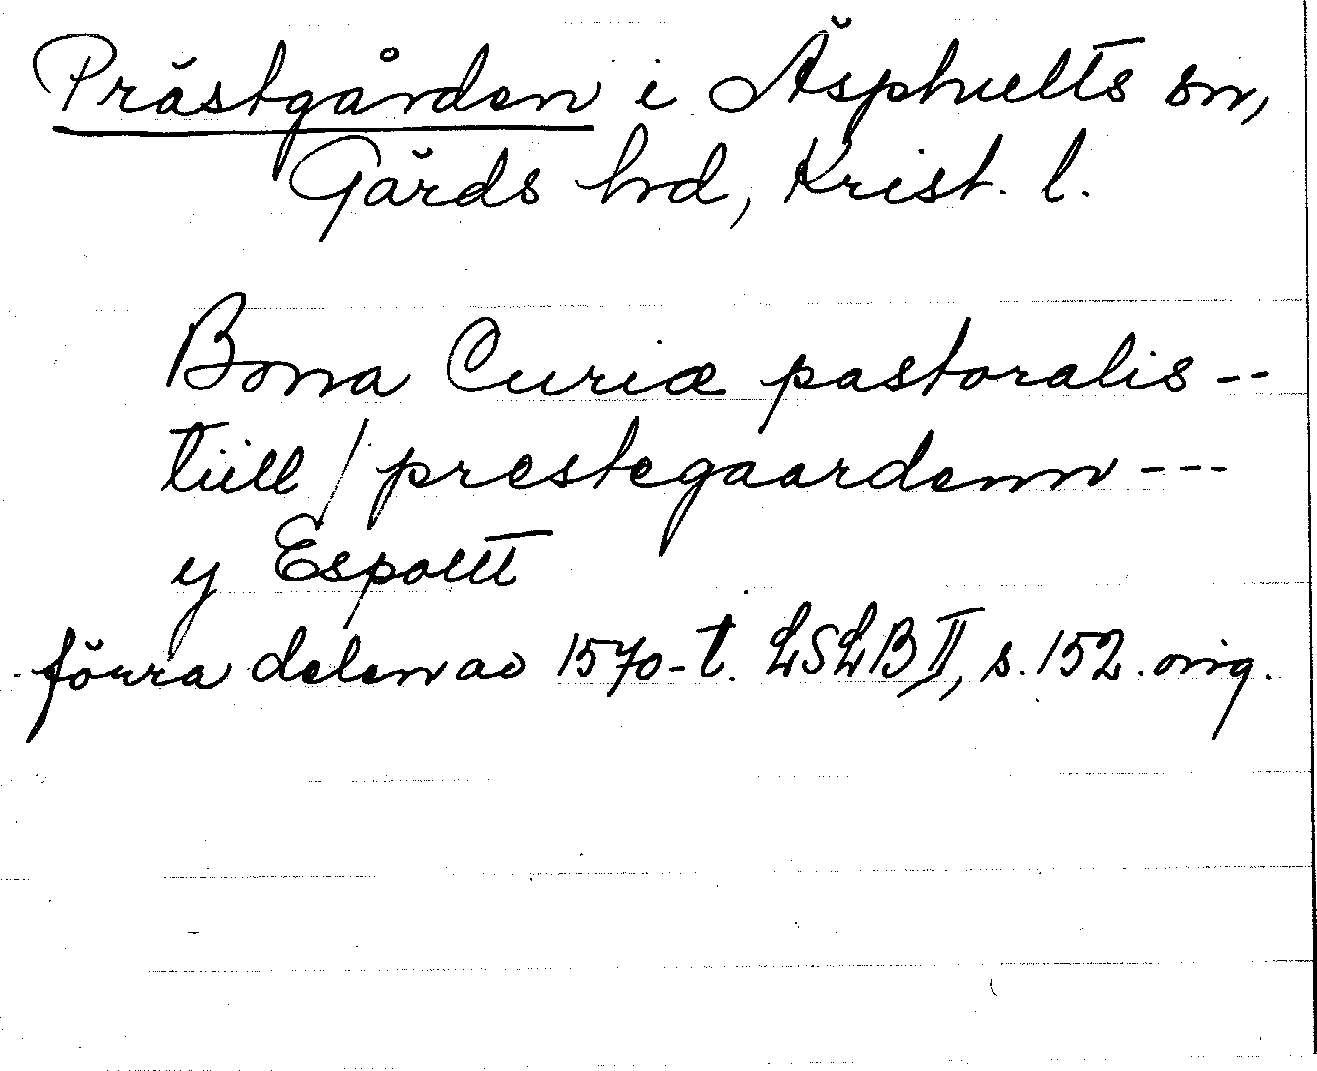 Prästgården i Äsphults sn,
Gärds hd, Krist. l.
Bona Curiæ pastoralis --
tiill / prestegaardenn ---
y Espoltt
förra delen av 1570-t. LSLB II, s. 152. orig.